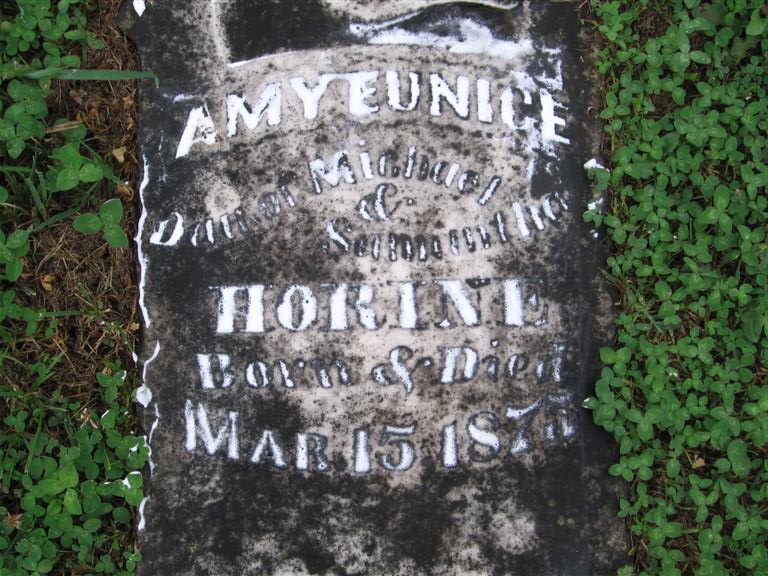 AMY EUNICE
Dau. of Michael
& Samantha
HORINE
Born & Died
MAR. 15, 1875